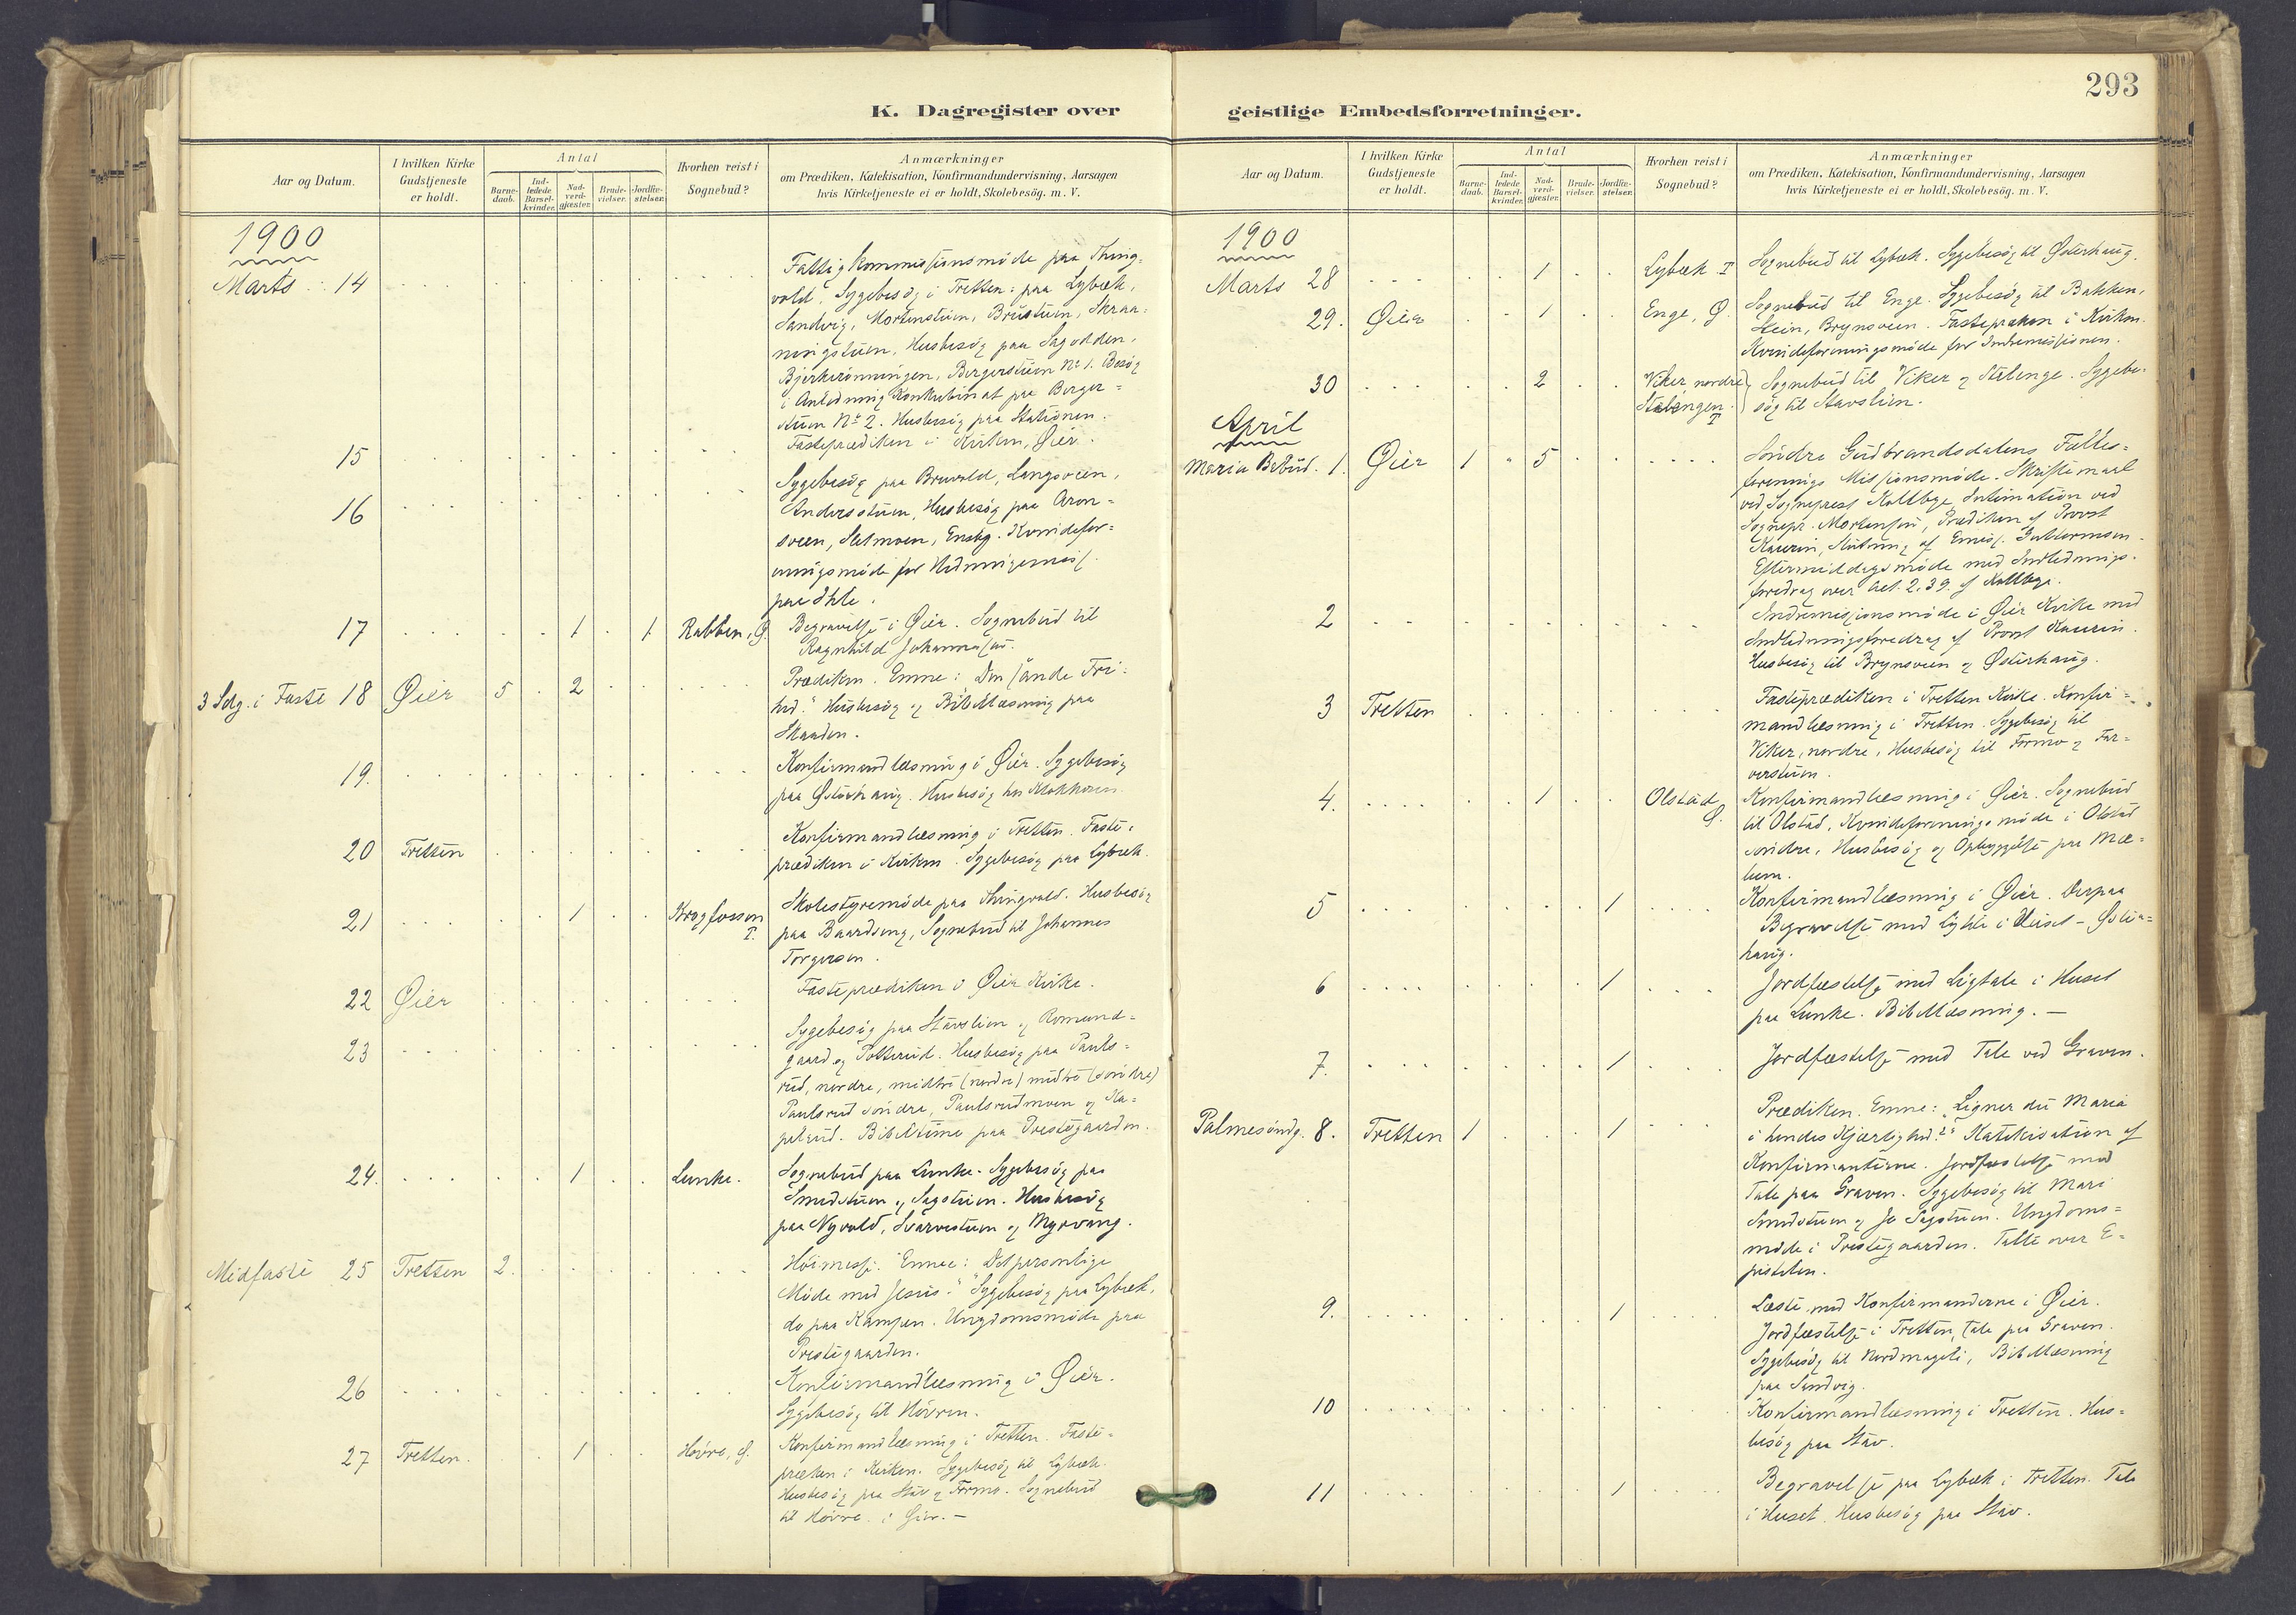 293
K. Dagregister over geistlige Embedsforretninger.
Aar og Datum.
I hvilken Kirke Gudstjeneste er holdt.
Antal
Barne-daab.
Ind-ledede Barsel-kvinder.
Nad-verd-gjæster.
Brude-vielser.
Jordfæ-stelser.
Hvorhen reist i Sognebud?
Anmærkninger
om Prædiken, Katekisation, Konfirmandundervisning, Aarsagen
hvis Kirketjeneste ei er holdt, Skolebesög. m. V.
1900
Marts 14
Fattigkommissionsmöde paa Thing-
vold. Sygebesög i Tretten: paa Lybæk,
Sandvig, Mortenstuen, Brustuen, Skraa-
ningstuen, Husbesög paa Sagodden,
Bjerkerönningen, Bergerstuen No 1. Besög
i Anledning Konkubinat paa Berger-
stuen No 2. Husbesög paa Stationen.
15
Fasteprædiken i Kirken, Öier.
16
Sygebesög paa Bruvold, Langsveen,
Andersstuen, Husbesög paa Aron-
sveen, Sletmoen, Ensby. Kvindefor-
eningsmöde for Hedningemiss.
paa Ihle.
17 1 1 Rabben, Ö.
Begravelse i Öier. Sognebud til
Ragnhild Johannesen.
3 Sdg. i Faste 18 Öier 5 2
Prædiken. Emne: Den sande Fri-
hed." Husbesög og Bibellæsning paa
Skaaden.
19.
Konfirmandlæsning i Öier. Sygebesög
paa Österhaug. Husbesög hos Klokkeren.
20 Tretten
Konfirmandlæsning i Tretten. Faste-
prædiken i Kirken. Sygebesög paa Lybæk.
21 1 Kragfossen T.
Skolestyremöde paa Thingvold. Husbesög
paa Baardseng, Sognebud til Johannes
Torgersen.
22 Öier
Fasteprædiken i Öier Kirke.
23
Sygebesög paa Stavslien og Romund-
gaard og Potterud. Husbesög paa Pauls-
rud, nordre, midtre (nordre) midtre (söndre)
Paulsrud söndre, Paulsrudmoen og Ka-
pelrud. Bibeltime paa Prestegaarden.
24. 1 Lunke.
Sognebud paa Lunke. Sygebesög paa
Smedstuen og Sagstuen. Husbesög
paa Nyvold, Svarvestuen og Myrvang.
Midfaste 25 Tretten 2.
Höimesse. Emne: Det personlige
Möde med Jesus." Sygebesög paa Lybæk,
do paa Kampen. Ungdomsmöde paa
Prestegaarden.
26
Konfirmandlæsning i Öier.
Sygebesög til Hövren.
27 Tretten. 1 Hövre, Ö.
Konfirmandlæsning i Tretten. Faste-
præken i Kirken. Sygebesög til Lybæk.
Husbesög paa Stav og Formo. Sognebud
til Hövre i Öier. —
Aar og Datum.
I hvilken Kirke Gudstjeneste er holdt.
Antal
Barne-daab.
Ind-ledede Barsel-kvinder.
Nad-verd-gjæster.
Brude-vielser.
Jordfæ-stelser.
Hvorhen reist i Sognebud?
Anmærkninger
om Prædiken, Katekisation, Konfirmandundervisning, Aarsagen
hvis Kirketjeneste ei er holdt, Skolebesög. m. V.
1900
Marts 28 1 Lybæk T
Sognebud til Lybæk. Sygebesög til Österhaug.
29. Öier 1 Enge, Ö.
Sognebud til Enge. Sygebesög til Bakken,
Stein, Brynsveen. Fastepræken i Kirken.
Kvindeforeningsmöde for Indremissionen.
30 2 Viker nordre Stalengen. T
Sognebud til Viker og Stalenge. Sygebe-
sög til Stavslien.
April
Maria Bebud. 1. Öier 1 5
Söndre Gudbrandsdalens Fælles-
forenings Missionsmöde. Skriftemaal
ved Sogneprest Koltbye, Intimation ved
Sognepr. Mortensen, Prædiken af Provst
Kaurin, Slutning af Emiss. Guttormsen.
Eftermiddagsmöde med Indlednings-
foredrag over Act. 2.39. af Koltbye.
2
Indremissionsmöde i Öier Kirke med
Indledningsforedrag af Provst Kaurin.
Husbesög til Brynsveen og Österhaug.
3 Tretten
Fasteprædiken i Tretten Kirke. Konfir-
mandlæsning i Tretten. Sygebesög til
Viker, nordre, Husbesög til Formo og Far-
verstuen.
4. 1 Olstad Ö.
Konfirmandlæsning i Öier. Sognebud
til Olstad, Kvindeforeningsmöde i Olstad
söndre, Husbesög og Opbyggelse paa Mæ-
lum.
5 1
Konfirmandlæsning i Öier. Derpaa
Begravelse med Ligtale i Huset - Öster-
haug.
6 1
Jordfæstelse med Ligtale i Huset
paa Lunke. Bibellæsning. —
7. 1
Jordfæstelse med Tale ved Graven.
Palmesöndg. 8. Tretten 1 1
Prædiken. Emne: "Ligner du Maria
i hendes Kjærlighed?" Katekisation af
Konfirmanterne. Jordfæstelse med
Tale paa Graven. Sygebesög til Mari
Smedstuen og Jo Sagstuen. Ungdoms-
möde i Prestegaarden. Talte over E-
pistelen.
9. 1
Læste med Konfirmanderne i Öier.
Jordfæstelse i Tretten, tale paa Graven.
Sygebesög til Nordmageli, Bibellæsning
paa Sandvig.
10
Konfirmandlæsning i Tretten. Hus-
besög paa Stav.
11 1
Begravelse paa Lybæk i Tretten. Tale
i Huset. Husbesög paa Stav.